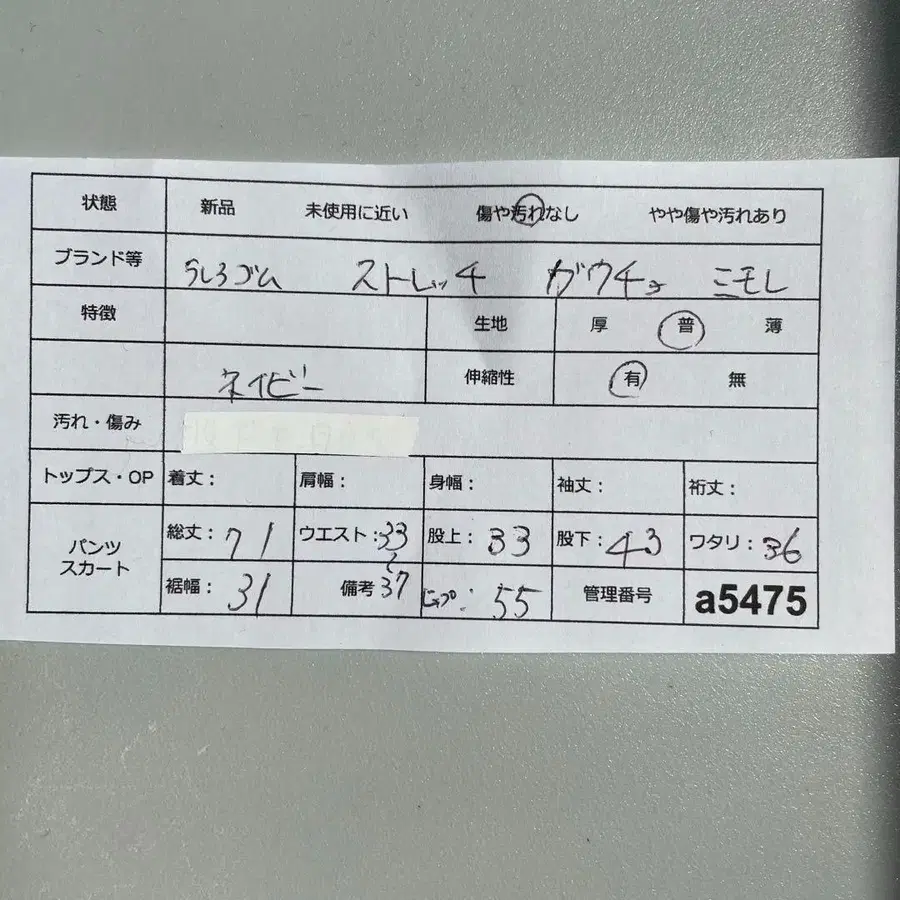 状態 新品 未使用に近い 傷や汚れなし やや傷や汚れあり
ブランド等 うしろゴム ストレッチ ガウチョ ミモレ
特徴 生地 厚 普 薄
ネイビー 伸縮性 有 無
汚れ・傷み
トップス・OP 着丈: 肩幅: 身幅: 袖丈: 裄丈:
パンツ スカート 総丈: 71 ウエスト: 33 〜 37 股上: 33 股下: 43 ワタリ: 36
裾幅: 31 備考 ヒップ: 55 管理番号 a5475